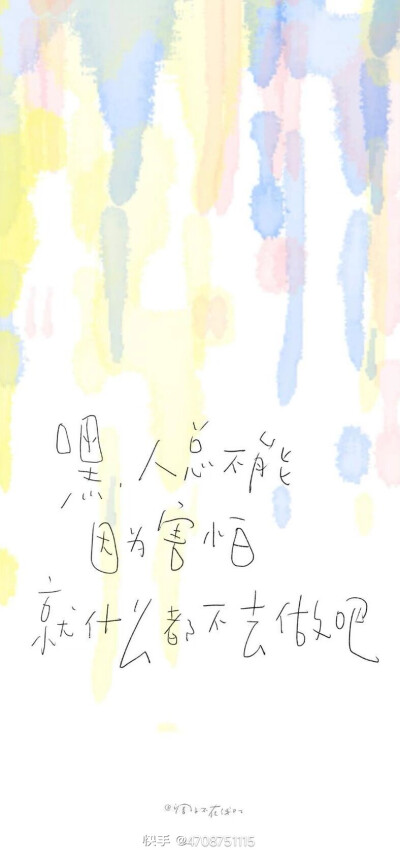 嘿，人总不能
因为害怕
就什么都不去做吧
快手 @4708751115